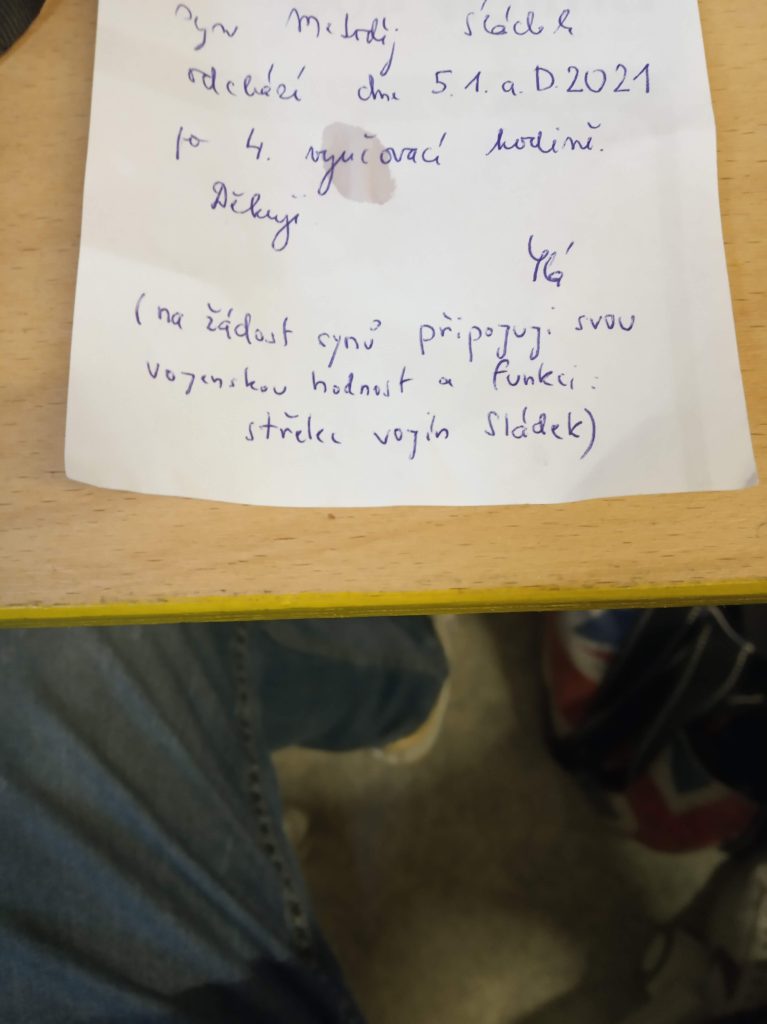 syn Metoděj Sládek
odchází dne 5.1. a. D. 2021
po 4. vyučovací hodině.
Děkuji
(na žádost synů připojuji svou
vojenskou hodnost a funkci:
střelec vojín Sládek)